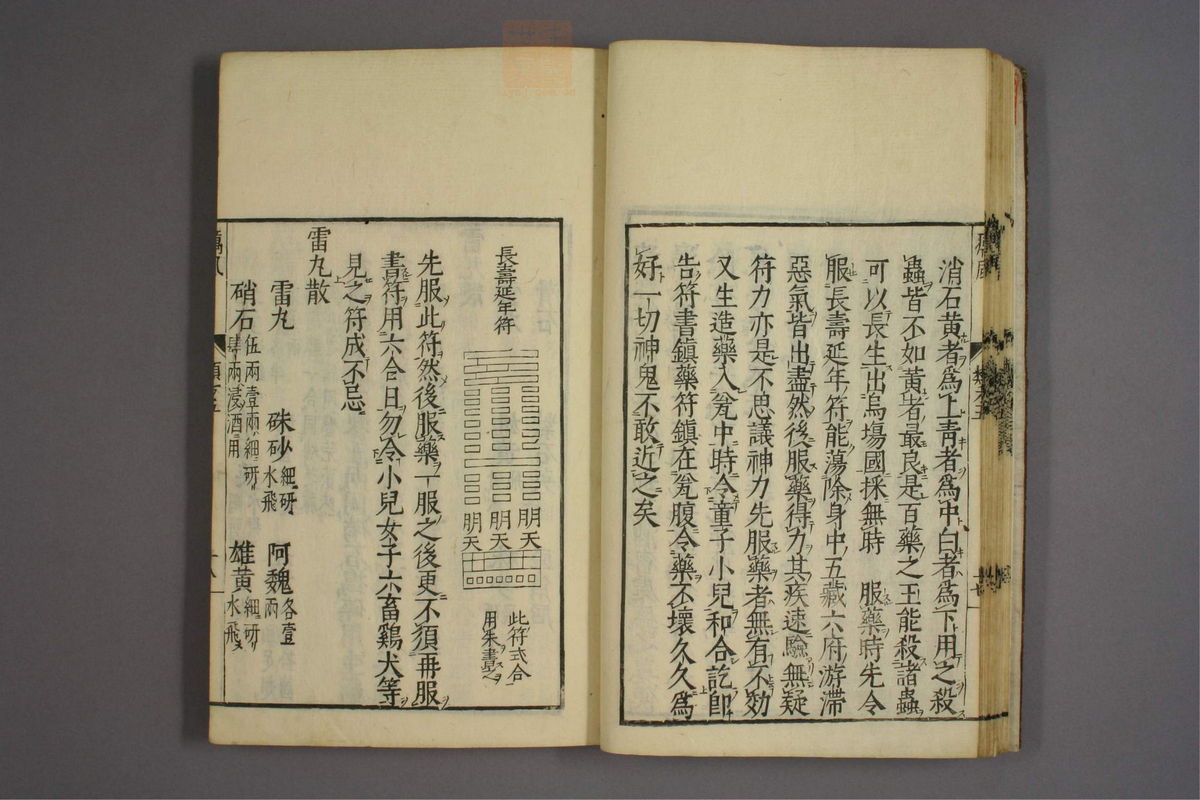 消石黃者爲上青者爲中白者爲下用之殺
蟲皆不如黃者最良是百藥之王能殺諸蟲
可以長生出烏場國採無時 服藥時先令
服長壽延年符能蕩除身中五藏六府游滯
惡氣皆出盡然後服藥得力其疾速驗無疑
符力亦是不思議神力先服藥者無有不効
又生造藥入瓮中時令童子小兒和合訖即
告符書鎮藥符鎮在瓮腹令藥不壞久久爲
好一切神鬼不敢近之矣
長壽延年符
明天
明天
明天
此符式合
用朱書之
先服此符然後服藥一服之後更不須再服
書符用六合日勿令小兒女子六畜鷄犬等
見之符成不忌
雷丸散
雷丸 硃砂細研水飛 阿魏各壹兩
硝石伍兩壹兩細研肆兩浸酒用 雄黃細研水飛